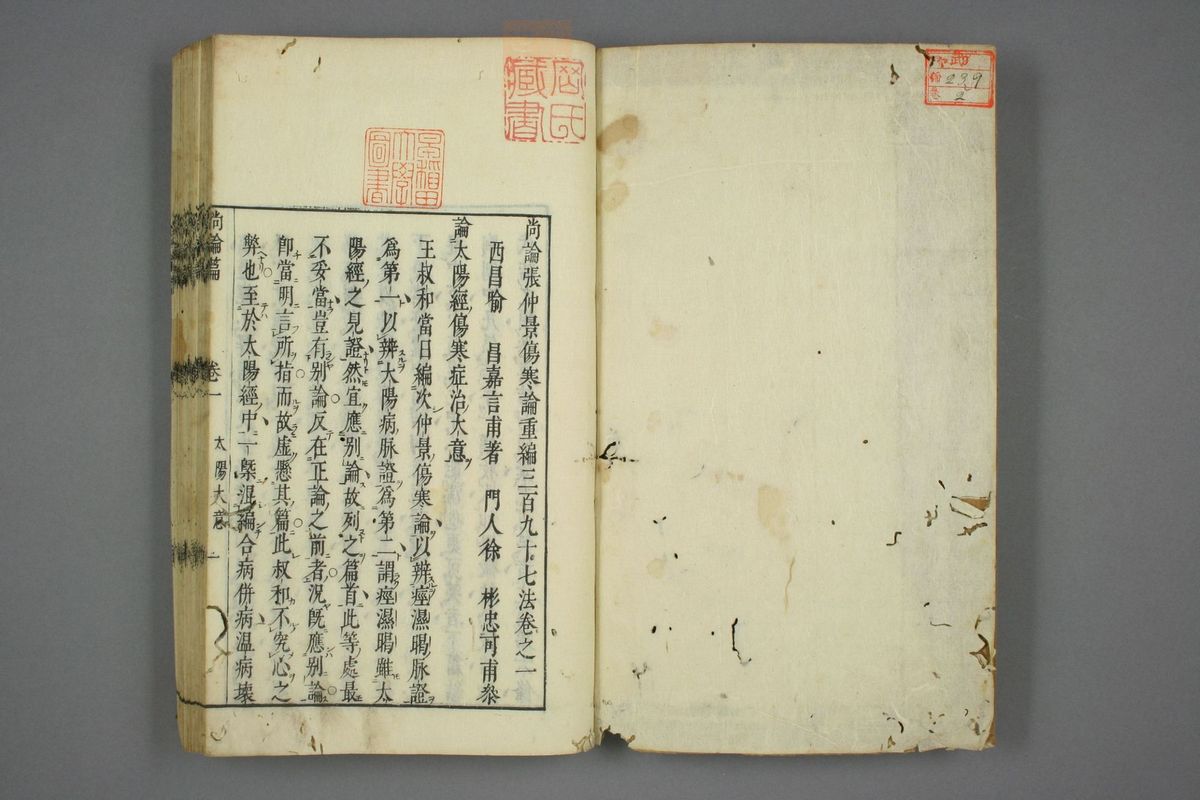 尚論張仲景傷寒論重編三百九十七法卷之一
西昌喻　昌嘉言甫著　門人徐　彬忠可甫叅
論太陽經傷寒症治大意
王叔和當日編次仲景傷寒論以辨痙濕暍脉證
爲第一以辨太陽病脉證爲第二謂痙濕暍雖太
陽經之見證然宜應别論故列之篇首此等處最
不妥當豈有别論反在正論之前者況旣應别論
卽當明言所指而故虛懸其篇此叔和不究心之
弊也至於太陽經中一槩混編合病併病溫病壞
尚論篇　卷一　太陽大意　一
藏書
早稲田大學圖書
239
2